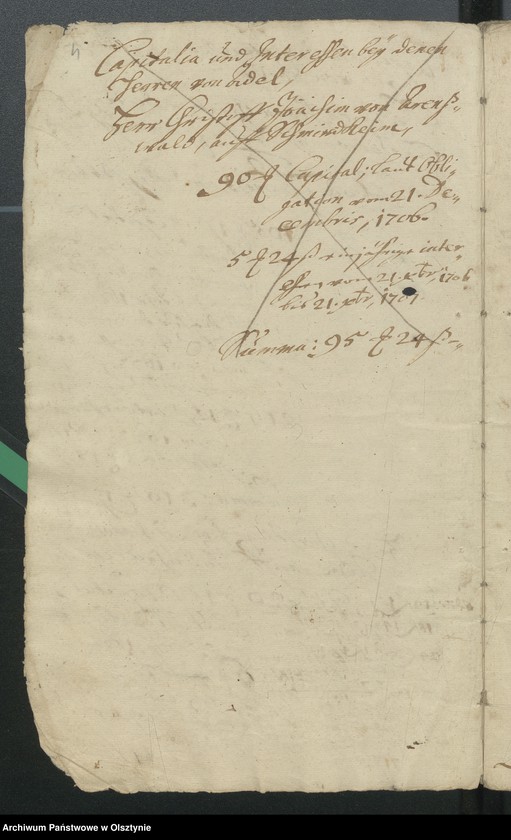 4
Capitalia und Interessen bey denen
Herren von Adel
Herr Christoff Joachim von
wald, auff Schwindheim,
90 f Capital; laut Obli-
gation vom 21. De-
cembris, 1706.
5 f 24 ß einjährige inter-
essen vom 21. xbr, 1706
bis 21. xbr, 1707
Summa: 95 f 24 ß
Archiwum Państwowe w Olsztynie